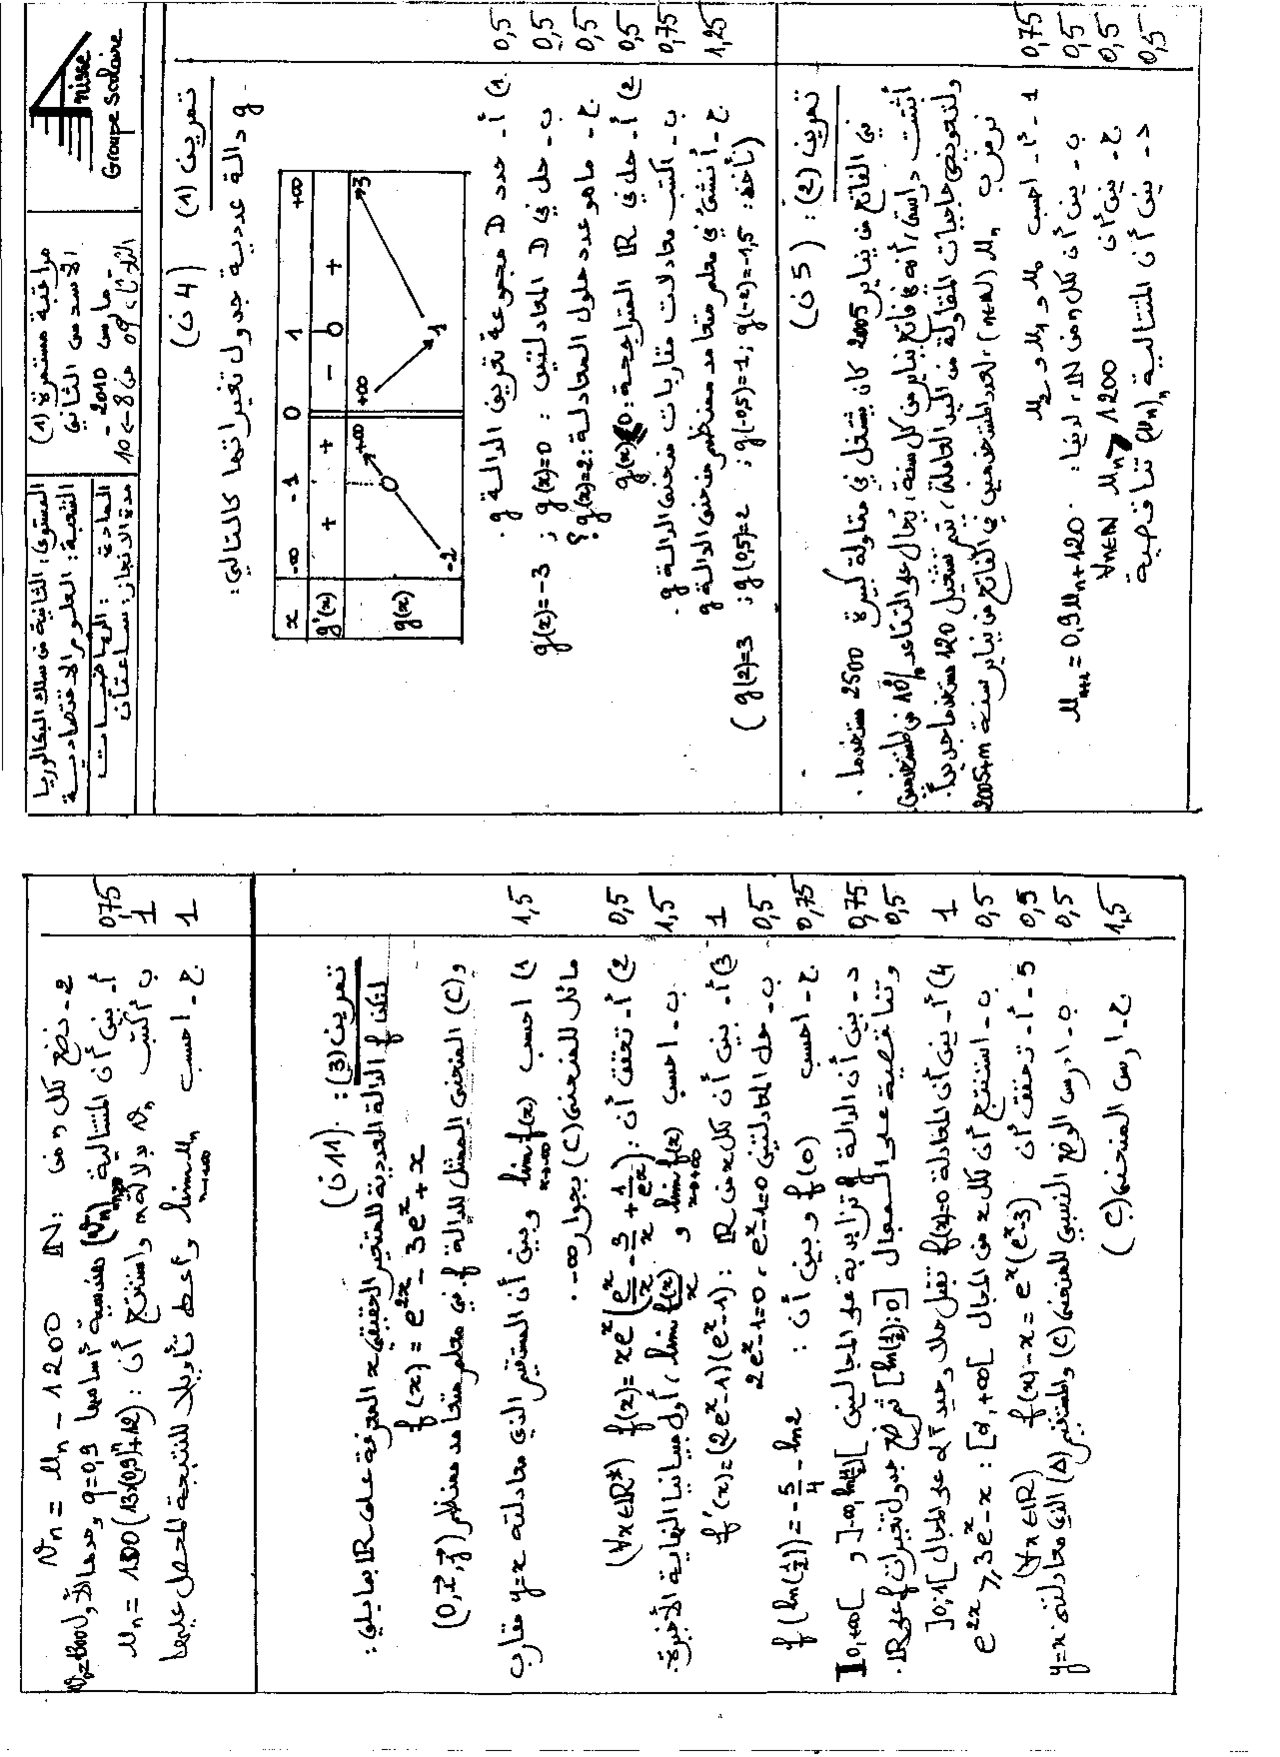 المستوى: الثانية من سلك البكالوريا
الشعبة: العلوم الاقتصادية
المادة: الرياضيات
مدة الانجاز: ساعتان
مراقبة مستمرة (1)
الأسدس الثاني
- مارس 2010 -
الثلاثاء 09 من 8 -> 10
Anisse
Groupe Scolaire
تمرين (1) (4 ن)
g دالة عددية جدول تغيراتها كالتالي:
x -∞ -1 0 1 +∞
g'(x) + + - 0 +
g(x) -2 0 +∞ +∞ 1 3
1) أ- حدد D مجموعة تعريف الدالة g. 0,5
ب- حل في D المعادلتين: g(x)=0 ; g(x)=-3 0,5
ج- ماهو عدد حلول المعادلة: g(x)=2؟ 0,5
2) أ- حل في IR المتراجحة: g(x)<0 0,5
ب- اكتب معادلات مقاربات منحنى الدالة g. 0,75
ج- أنشئ في معلم متعامد ممنظم منحنى الدالة g 1,25
(نأخذ: g(-2)=-1,5 ; g(-0,5)=1 ; g(0,5)=2 ; g(2)=3)
تمرين (2): (5 ن)
في الفاتح من يناير 2005 كان يشتغل في مقاولة كبيرة 2500 مستخدما.
أثبتت دراسة، أنه في فاتح يناير من كل سنة، يُحال على التقاعد 10% من المستخدمين
ولتعويض حاجيات المقاولة من اليد العاملة، تتم تشغيل 120 مستخدما جديداً.
نرمز ب Un (n∈IN)، لعدد المستخدمين في الفاتح من يناير سنة 2005+n
1- أ- احسب U0 و U1 و U2 0,75
ب- بين أن لكل n من IN، لدينا: Un+1=0,9Un+120 0,5
ج- بين أن ∀n∈IN Un > 1200 0,5
د- بين أن المتتالية (Un)n تناقصية 0,5
2- نضع لكل n من IN: Vn = Un - 1200
أ- بين أن المتتالية (Vn)n≥0 هندسية أساسها q=0,9 وحدها الأول V0=1300 0,75
ب- أكتب Vn بدلالة n واستنتج أن: Un = 100(13x(0,9)^n+12) 1
ج- احسب lim Un n→+∞ وأعط تأويلا للنتيجة المحصل عليها 1
تمرين (3): (11 ن).
لتكن f الدالة العددية للمتغير الحقيقي x المعرفة على IR بما يلي:
f(x) = e^2x - 3e^x + x
و (C) المنحنى الممثل للدالة f. في معلم متعامد ممنظم (O,i,j)
1) احسب lim f(x) x→-∞ وبين أن المستقيم الذي معادلته y=x مقارب 1,5
مائل للمنحنى (C) بجوار -∞.
2) أ- تحقق أن: (∀x∈IR*) f(x)= xe^x(e^x/x - 3/x + 1/e^x) 0,5
ب- احسب lim f(x) x→+∞ و lim f(x)/x x→+∞، أول مبيانيا النهاية الأخيرة. 1,5
3) أ- بين أن لكل x من IR: f'(x)=(2e^x-1)(e^x-1) 1
ب- حل المعادلتين e^x-1=0 ، 2e^x-1=0 0,5
ج- احسب f(0) و بين أن: f(ln(1/2))=-5/4-ln2 0,75
د- بين أن الدالة f تزايدية على المجالين ]-∞,ln(1/2)] و [0,+∞[ 0,75
وتناقصية على المجال [ln(1/2);0] ثم ضع جدول تغيرات f على IR. 0,5
4) أ- بين أن المعادلة f(x)=0 تقبل حلا وحيدا α على المجال ]0;1[ 1
ب- استنتج أن لكل x من المجال [α,+∞[ : e^2x ≥ 3e^x - x 0,5
5- أ- تحقق أن (∀x∈IR) f(x)-x = e^x(e^x-3) 0,5
ب- ادرس الوضع النسبي للمنحنى (C) والمستقيم (Δ) الذي معادلته y=x 0,5
ج- ارسم المنحنى (C) 1,5